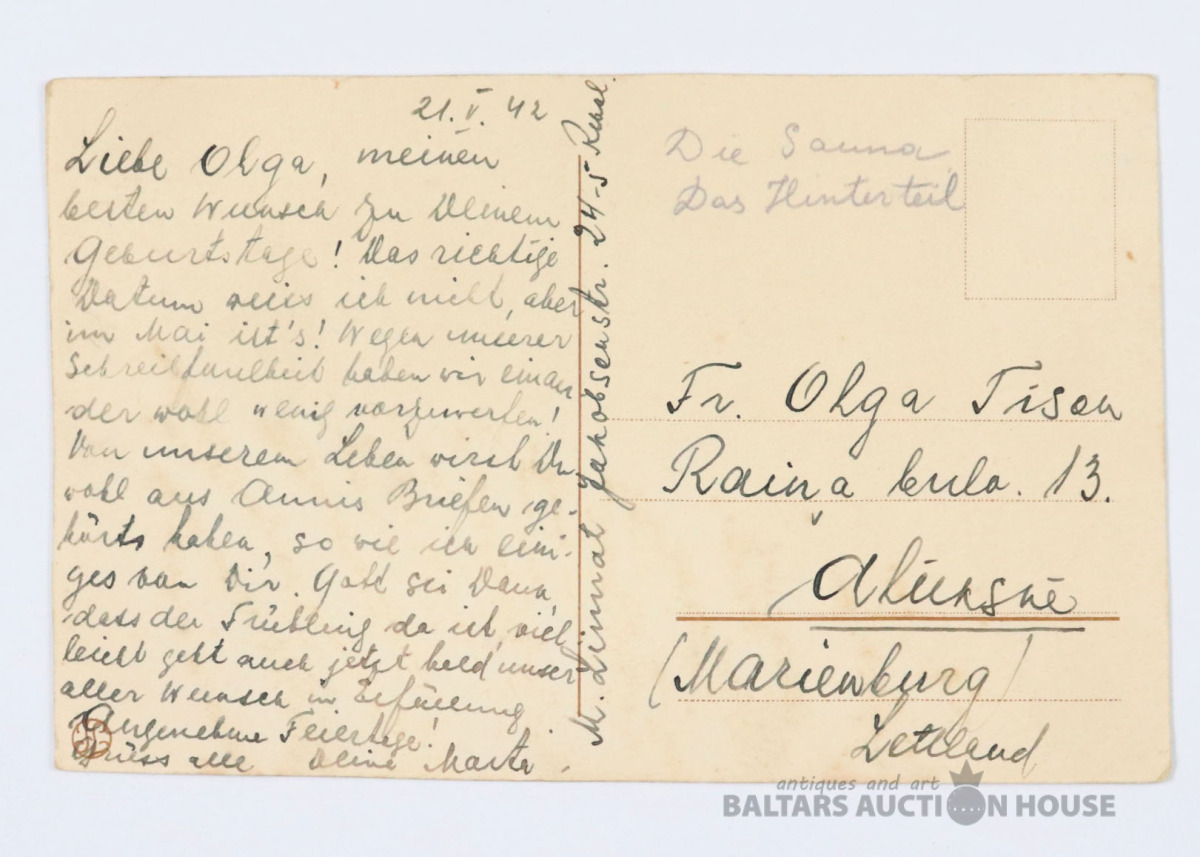 21. V. 42
Liebe Olga, meinen
besten Wunsch zu Deinem
Geburtstage! Das richtige
Datum weiss ich nicht, aber
im Mai ist's! Wegen unserer
Schreibfaulheit haben wir einan
der wohl wenig vorzuwerfen!
Von unserem Leben wirst Du
wohl aus Annis Briefen ge-
hört haben, so wie ich eini-
ges von Dir. Gott sei Dank,
dass der Frühling da ist, viel-
leicht geht auch jetzt bald unser
aller Wunsch in Erfüllung.
Angenehme Feiertage!
Grüss alle Deine Marta.
M. Linnat Jakobsenstr. 24-5 Reval.
Die Sauna
Das Hinterteil
Fr. Olga Tison
Raiņa bulv. 13.
Alūksnē
(Marienburg)
Lettland
antiques and art
BALTARS AUCTION HOUSE